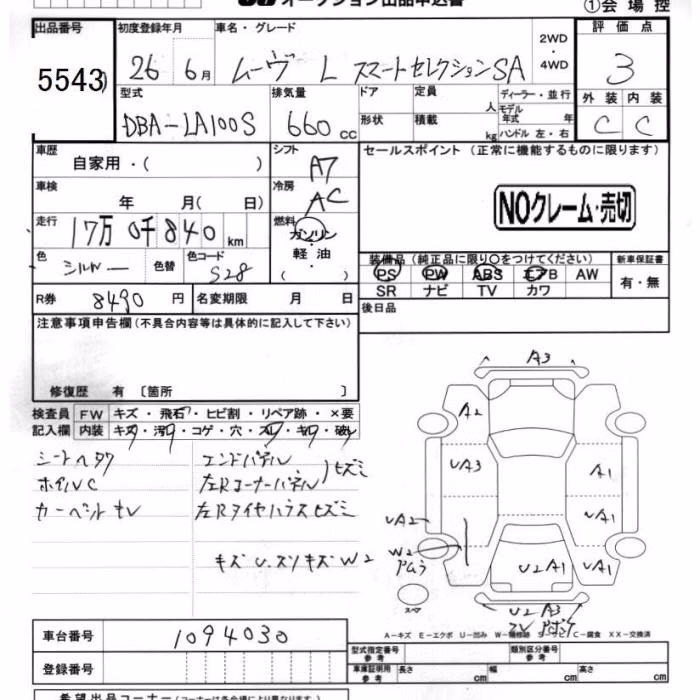 オークション出品申込書
①会場控
出品番号
初度登録年月
車名・グレード
評価点
5543
26年6月
ムーヴ L スマートセレクションSA
2WD・4WD
3
型式
排気量
ドア
定員 人
ディーラー・並行
モデル年式 年
外装 内装
DBA-LA100S
660 cc
形状
積載 kg
ハンドル 左・右
C C
車歴
自家用・( )
シフト
A7
セールスポイント (正常に機能するものに限ります)
車検
年 月( 日)
冷房
AC
NOクレーム・売切
走行
17万0千840 km
燃料
ガソリン・軽油・( )
色
シルバー
色替
色コード
S28
装備品 (純正品に限り○をつけてください)
新車保証書
PS PW ABS エアB AW
有・無
SR ナビ TV カワ
R券 8490 円
名変期限 月 日
後日品
注意事項申告欄 (不具合内容等は具体的に記入して下さい)
修復歴 有 〔箇所 〕
検査員記入欄
FW キズ・飛石・ヒビ割・リペア跡・×要
内装 キズ・汚・コゲ・穴・スレ・キレ・破レ
シートヘタク
エンドパネル
ホイルC
左Rコーナーパネル
ヒズミ
カーペットキレ
左Rタイヤハウスヒズミ
キズU.スリキズW2
A3
A2
UA3
A1
UA2
UA1
W2
U2A1
UA1
スペア
U2 A3
A－キズ E－エクボ U－凹み W－補修跡 S－サビ C－腐食 XX－交換済
車台番号 1094030
型式指定番号 参考
類別区分番号 参考
登録番号
車庫証明用 参考
長さ cm
幅 cm
高さ cm
希望出品コーナー (コーナーは各会場により異なります)